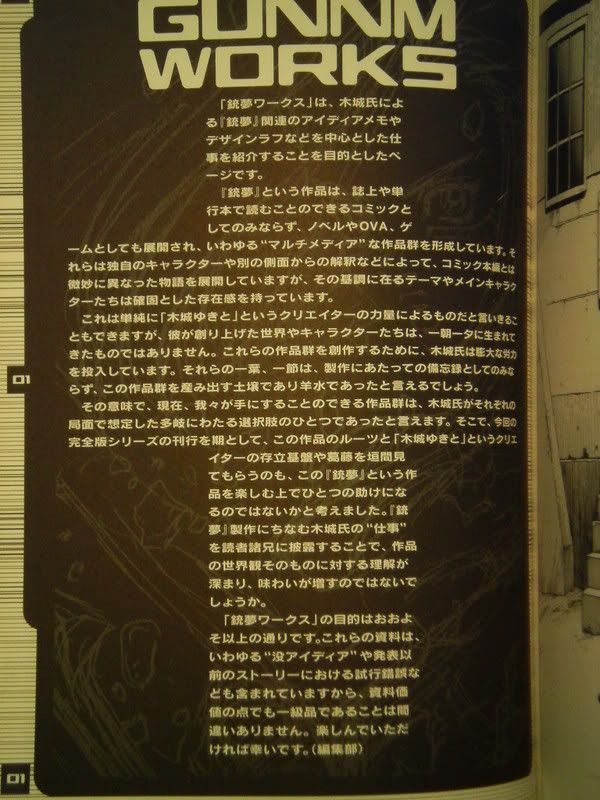 GUNNM
WORKS
「銃夢ワークス」は、木城氏によ
る『銃夢』関連のアイディアメモや
デザインラフなどを中心とした仕
事を紹介することを目的としたペ
ージです。
『銃夢』という作品は、誌上や単
行本で読むことのできるコミックと
してのみならず、ノベルやOVA、ゲ
ームとしても展開され、いわゆる“マルチメディア”な作品群を形成しています。そ
れらは独自のキャラクターや別の側面からの解釈などによって、コミック本編とは
微妙に異なった物語を展開していますが、その基調に在るテーマやメインキャラク
ターたちは確固とした存在感を持っています。
これは単純に「木城ゆきと」というクリエイターの力量によるものだと言いきるこ
ともできますが、彼が創り上げた世界やキャラクターたちは、一朝一夕に生まれて
きたものではありません。これらの作品群を創作するために、木城氏は膨大な労力
を投入しています。それらの一葉、一節は、製作にあたっての備忘録としてのみな
らず、この作品群を産み出す土壌であり羊水であったと言えるでしょう。
その意味で、現在、我々が手にすることのできる作品群は、木城氏がそれぞれの
局面で想定した多岐にわたる選択肢のひとつであったと言えます。そこで、今回の
完全版シリーズの刊行を期として、この作品のルーツと「木城ゆきと」というクリエ
イターの存立基盤や葛藤を垣間見
てもらうのも、この『銃夢』という作
品を楽しむ上でひとつの助けにな
るのではないかと考えました。『銃
夢』製作にちなむ木城氏の“仕事”
を読者諸兄に披露することで、作品
の世界観そのものに対する理解が
深まり、味わいが増すのではないで
しょうか。
「銃夢ワークス」の目的はおおよ
そ以上の通りです。これらの資料は、
いわゆる“没アイディア”や発表以
前のストーリーにおける試行錯誤な
ども含まれていますから、資料価
値の点でも一級品であることは間
違いありません。楽しんでいただ
ければ幸いです。（編集部）
01
01